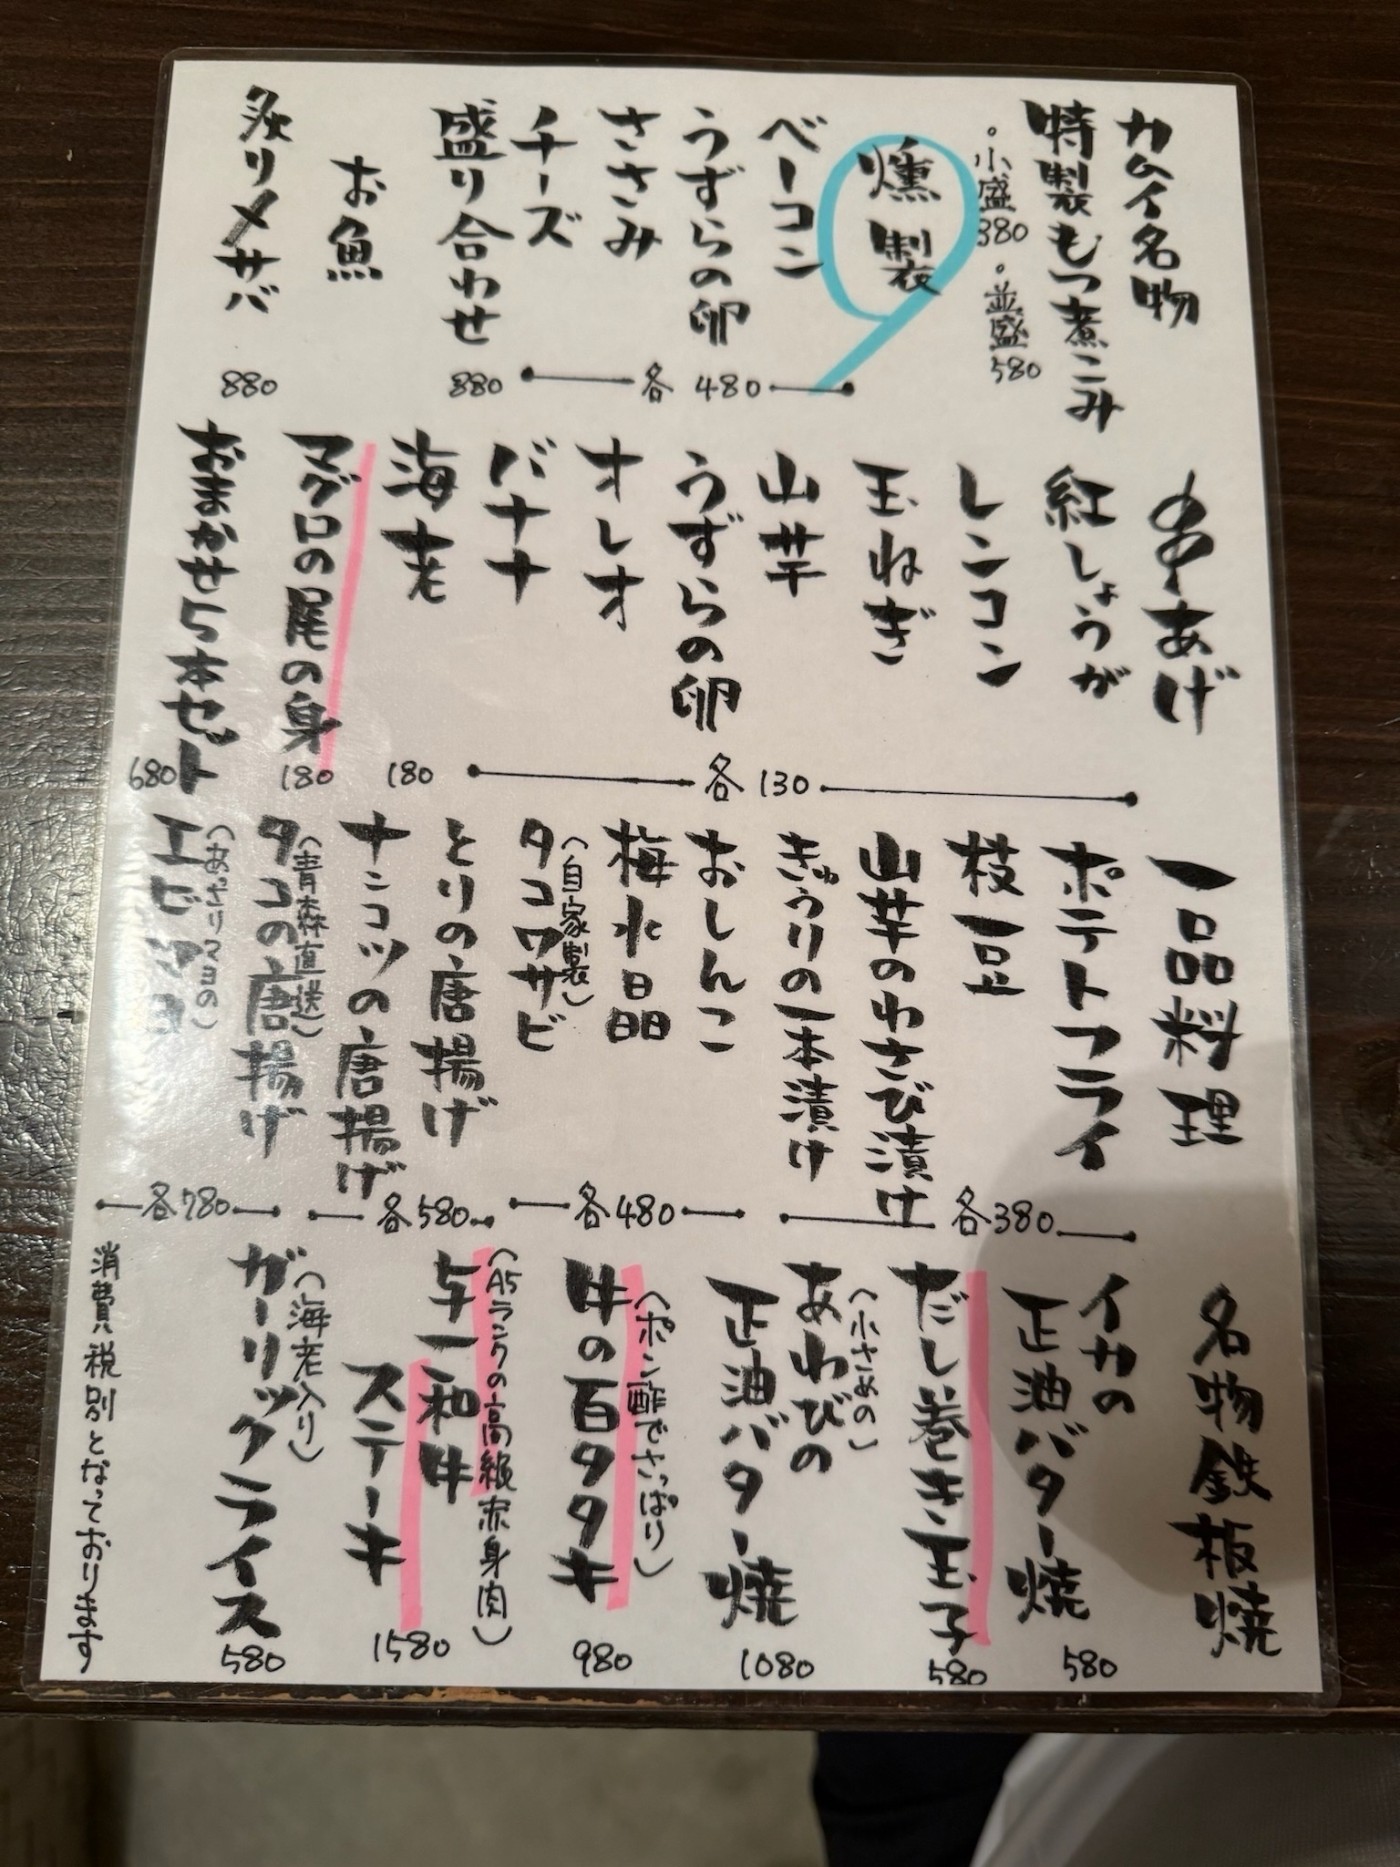 カムイ名物
特製もつ煮こみ
。小盛380 。並盛580
燻製
ベーコン
うずらの卵
ささみ
チーズ
各480
盛り合わせ
880
お魚
炙りメサバ
880
串あげ
紅しょうが
レンコン
玉ねぎ
山芋
うずらの卵
オレオ
バナナ
各130
海老
180
マグロの尾の身
180
おまかせ5本セット
680
一品料理
ポテトフライ
枝豆
山芋のわさび漬け
きゅうりの一本漬け
各380
おしんこ
梅水晶
(自家製)
タコワサビ
各480
とりの唐揚げ
ナンコツの唐揚げ
各580
(青森直送)
タコの唐揚げ
(あっさりマヨの)
エビマヨ
各780
名物鉄板焼
イカの
正油バター焼
580
だし巻き玉子
580
(小さめの)
あわびの
正油バター焼
1080
(ポン酢でさっぱり)
牛の百タタキ
980
(A5ランクの高級赤身肉)
与一和牛
ステーキ
1580
(海老入り)
ガーリックライス
580
消費税別となっております